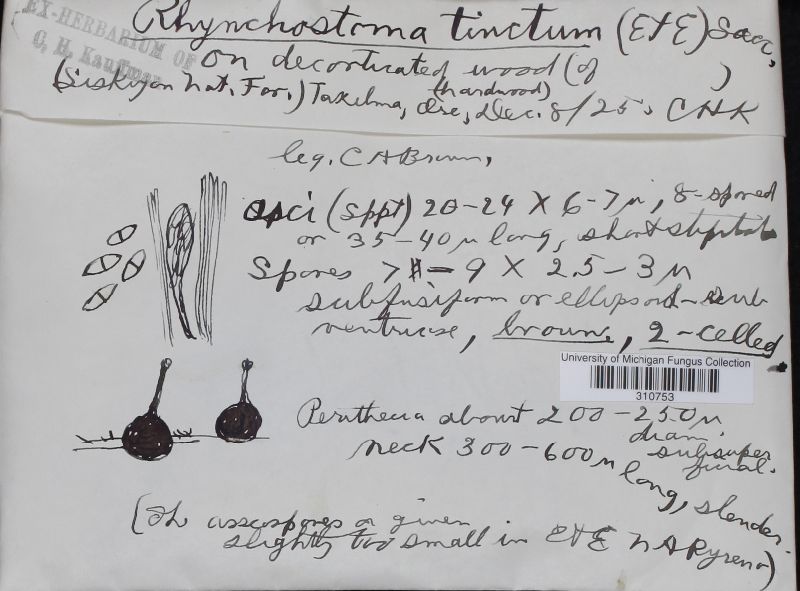 EX-HERBARIUM OF
C. H. Kauffman
Rhynchostoma tinctum (E&E) Sacc.
on decorticated wood (of )
(hardwood)
(Siskiyou Nat. For.) Takilma, Ore, Dec. 8/25. CHK
leg. C H Brown,
asci (sppt) 20-24 X 6-7 µ, 8-spored
or 35-40 µ long, short stipitate
Spores 7-9 X 2.5-3 µ
subfusiform or ellipsoid-sub
ventricose, brown, 2-celled.
University of Michigan Fungus Collection
310753
Perithecia about 200-250 µ
diam. subsuperficial.
neck 300-600 µ long, slender.
(The ascospores are given
slightly too small in E&E N A Pyreno)